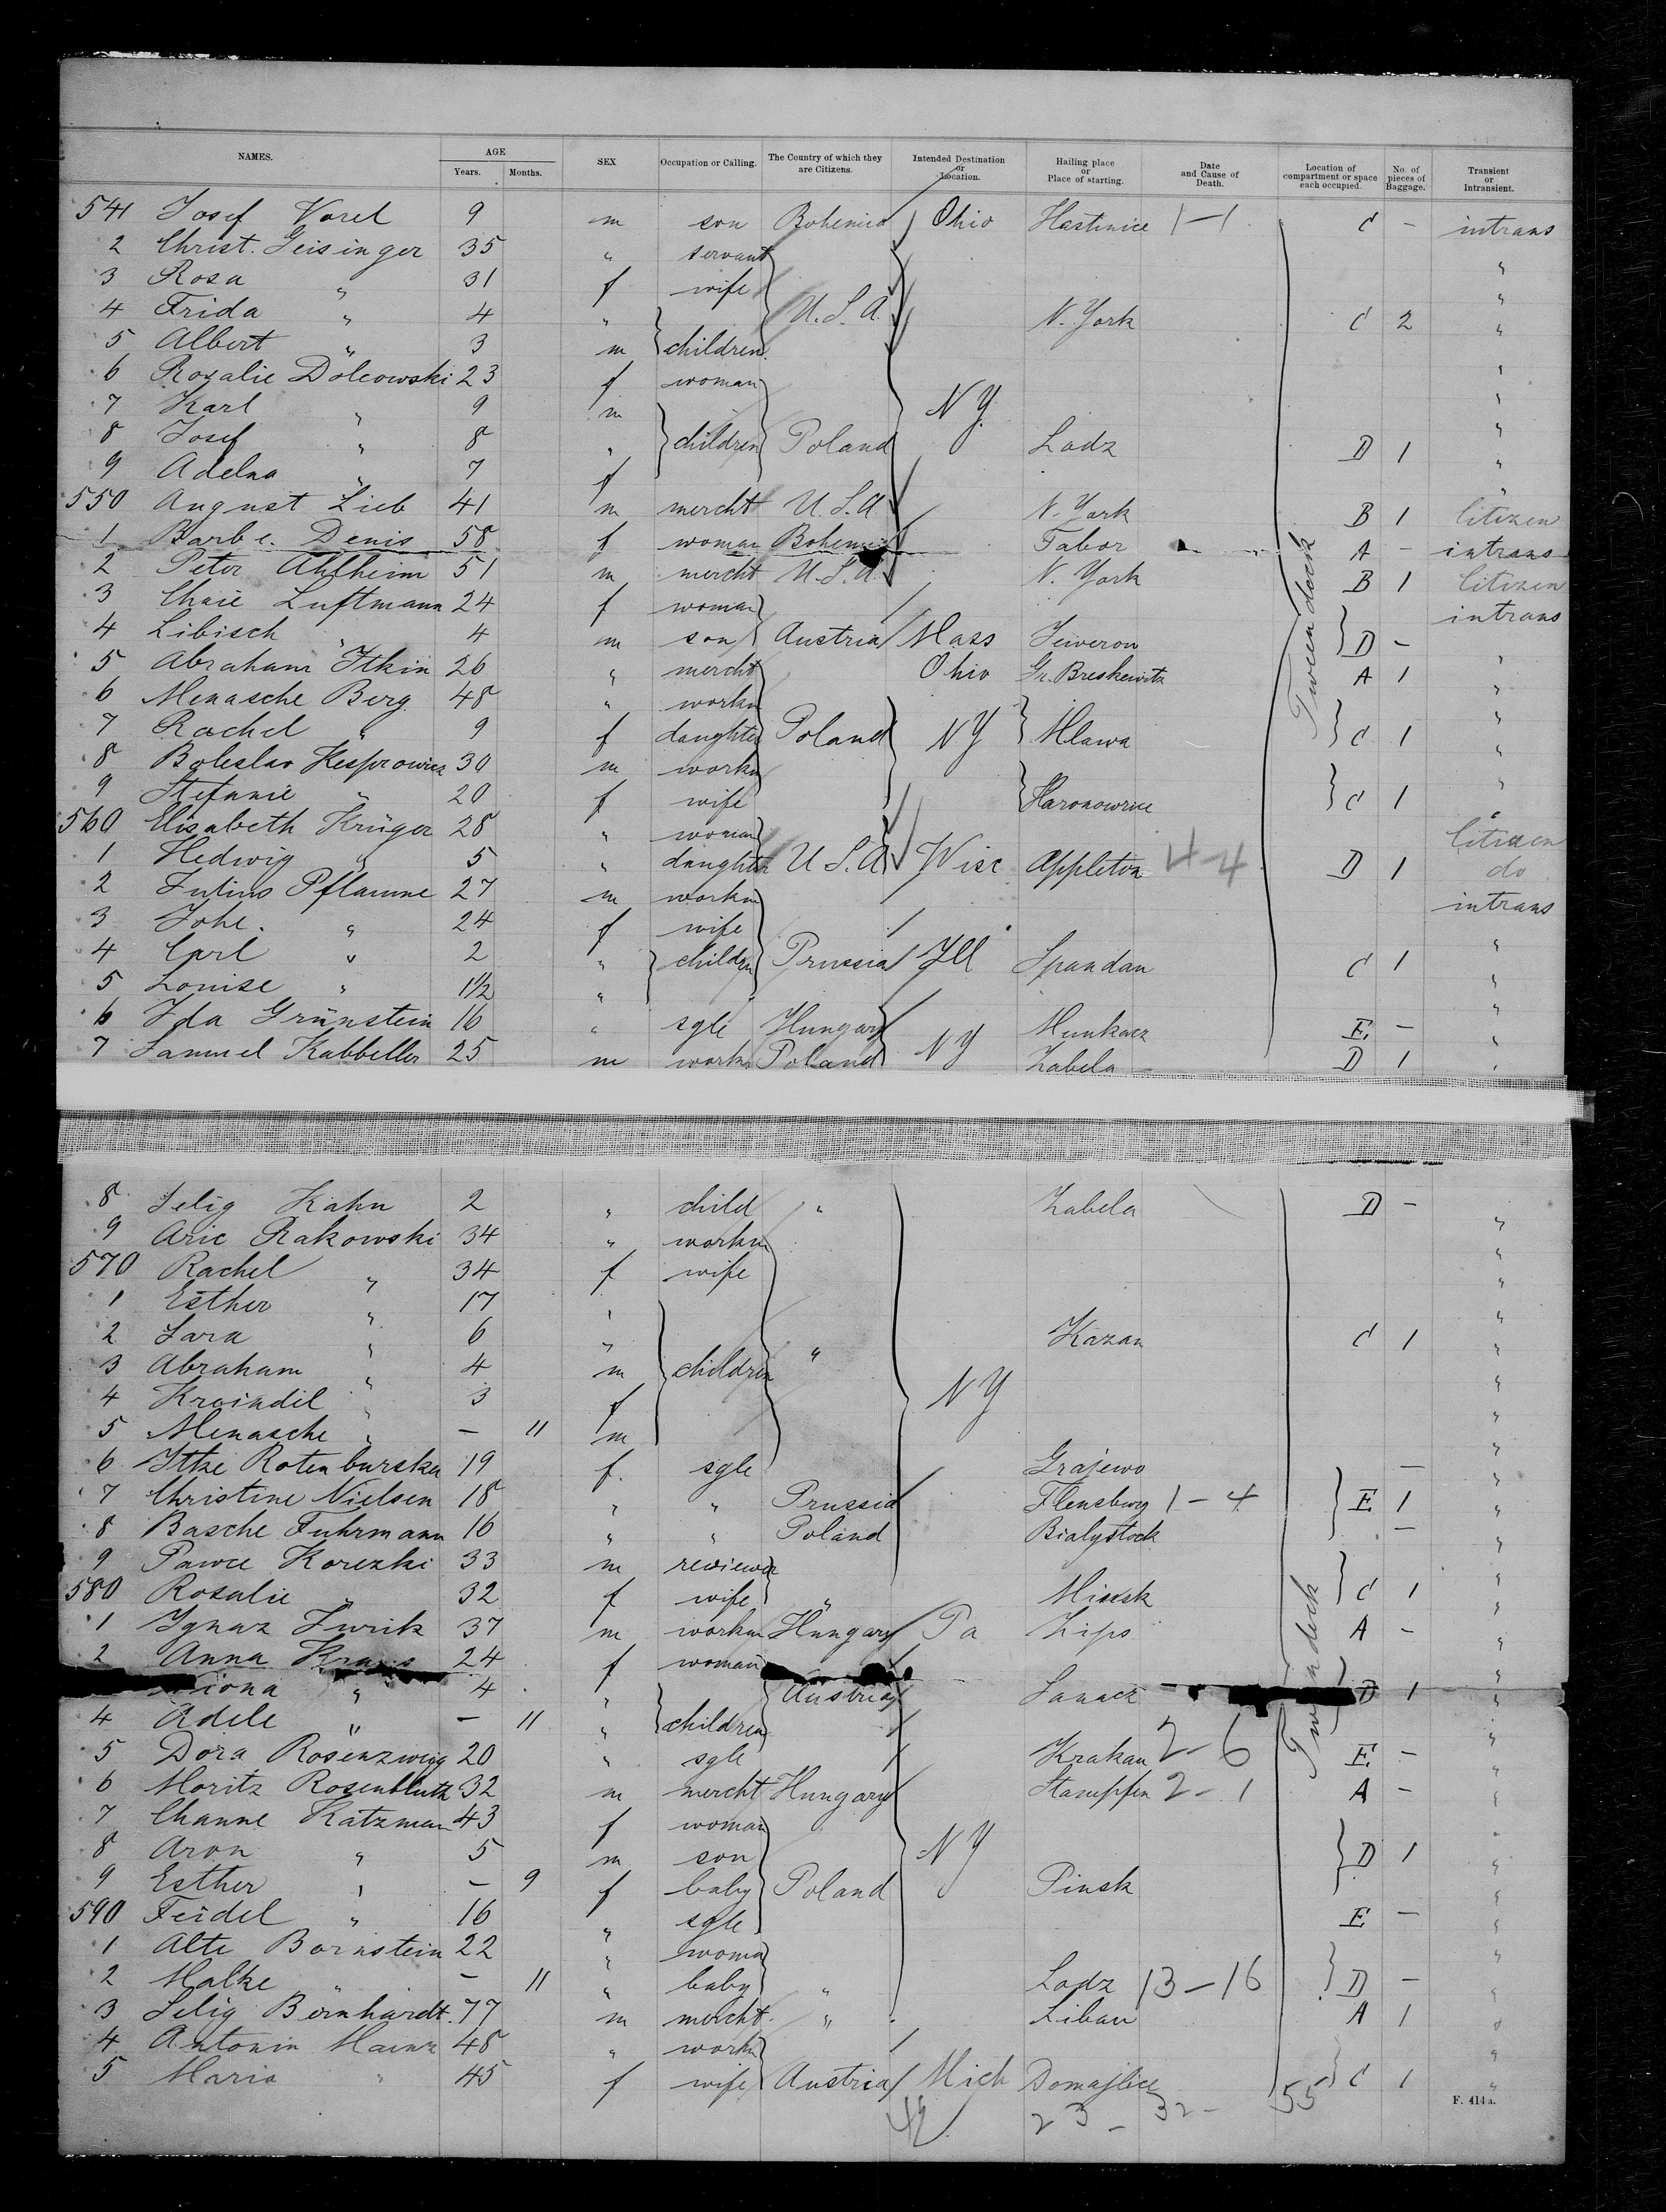 NAMES. AGE Years. Months. SEX Occupation or Calling. The Country of which they are Citizens. Intended Destination or Location. Hailing place or Place of starting. Date and Cause of Death. Location of compartment or space each occupied. No. of pieces of Baggage. Transient or Intransient.
541 Josef Vorel 9 m son Bohemia Ohio Hastinice 1-1 C - intrans
2 Christ. Geisinger 35 " servant "
3 Rosa " 31 f wife "
4 Frida " 4 " U.S.A. N. York C 2 "
5 Albert " 3 m children "
6 Rozalie Dolcowski 23 f woman "
7 Karl " 9 m NY "
8 Josef " 8 " children Poland Lodz D 1 "
9 Adelna " 7 f "
550 August Lieb 41 m mercht U.S.A N. York B 1 Citizen
1 Barbe. Denis 58 f woman Bohemia Tabor A - intrans
2 Peter Ahlheim 51 m mercht U.S.A. N. York B 1 Citizen
3 Chaie Luftmann 24 f woman intrans
4 Libisch " 4 m son Austria Mass D - "
5 Abraham Itkin 26 " mercht Ohio Gr. Breskewitz A 1 "
6 Menasche Berg 48 " workm "
7 Rachel " 9 f daughter Poland NY Mlawa C 1 "
8 Boleslav 30 m workm "
9 Stefanie " 20 f wife C 1 "
560 Elisabeth Krüger 28 " woman Citizen
1 Hedwig " 5 " daughter U.S.A Wisc Appleton 4-4 D 1 do
2 Julius Pflaume 27 m workm intrans
3 Johe. " 24 f wife "
4 Carl " 2 " children Prussia Ill Spandau C 1 "
5 Louise " 1½ " "
6 Ida Grünstein 16 " sgle Hungary Munkacz E. - "
7 Samuel Kabbeller 25 m workm Poland NY Zabela D 1 "
Tween deck
8 Selig Kahn 2 " child " Zabela D -
9 Aric Rakowski 34 " workm "
570 Rachel " 34 f wife "
1 Esther " 17 " "
2 Sara " 6 " Kazan C 1 "
3 Abraham " 4 m children " "
4 Kraindil " 3 f NY "
5 Menasche " - 11 m "
6 Itke Rotenburska 19 f. sgle Grajewo - "
7 Christine Nielsen 18 " " Prussia Flensburg 1-4 E 1 "
8 Basche Fuhrmann 16 " " Poland Bialystock - "
9 Pawce Korezki 33 m "
580 Rosalie " 32 f wife " Minsk C 1 "
1 Ignaz Zurik 37 m workm Hungary Pa Zips A - "
2 Anna Kraus 24 f woman "
" 4 " Austria Sanacz D 1 "
4 Adele " - 11 " children "
5 Dora Rosenzweig 20 " sgle Krakau 2-6 E - "
6 Moritz Rosenbluth 32 m mercht Hungary Stampfen 2-1 A - "
7 Channe Katzman 43 f woman "
8 Aron " 5 m son NY D 1 "
9 Esther " - 9 f baby Poland Pinsk "
590 Feidel " 16 " sgle E - "
1 Alte Bornstein 22 " woma "
2 Malke " - 11 " baby " Lodz 13-16 D - "
3 Selig Bernhardt. 77 m mercht. " Libau A 1 "
4 Antonin Mainz 48 " workm "
5 Maria " 45 f wife Austria Mich Domazlice C 1 "
Tweendeck
42 23 - 32 - 55
F. 414a.